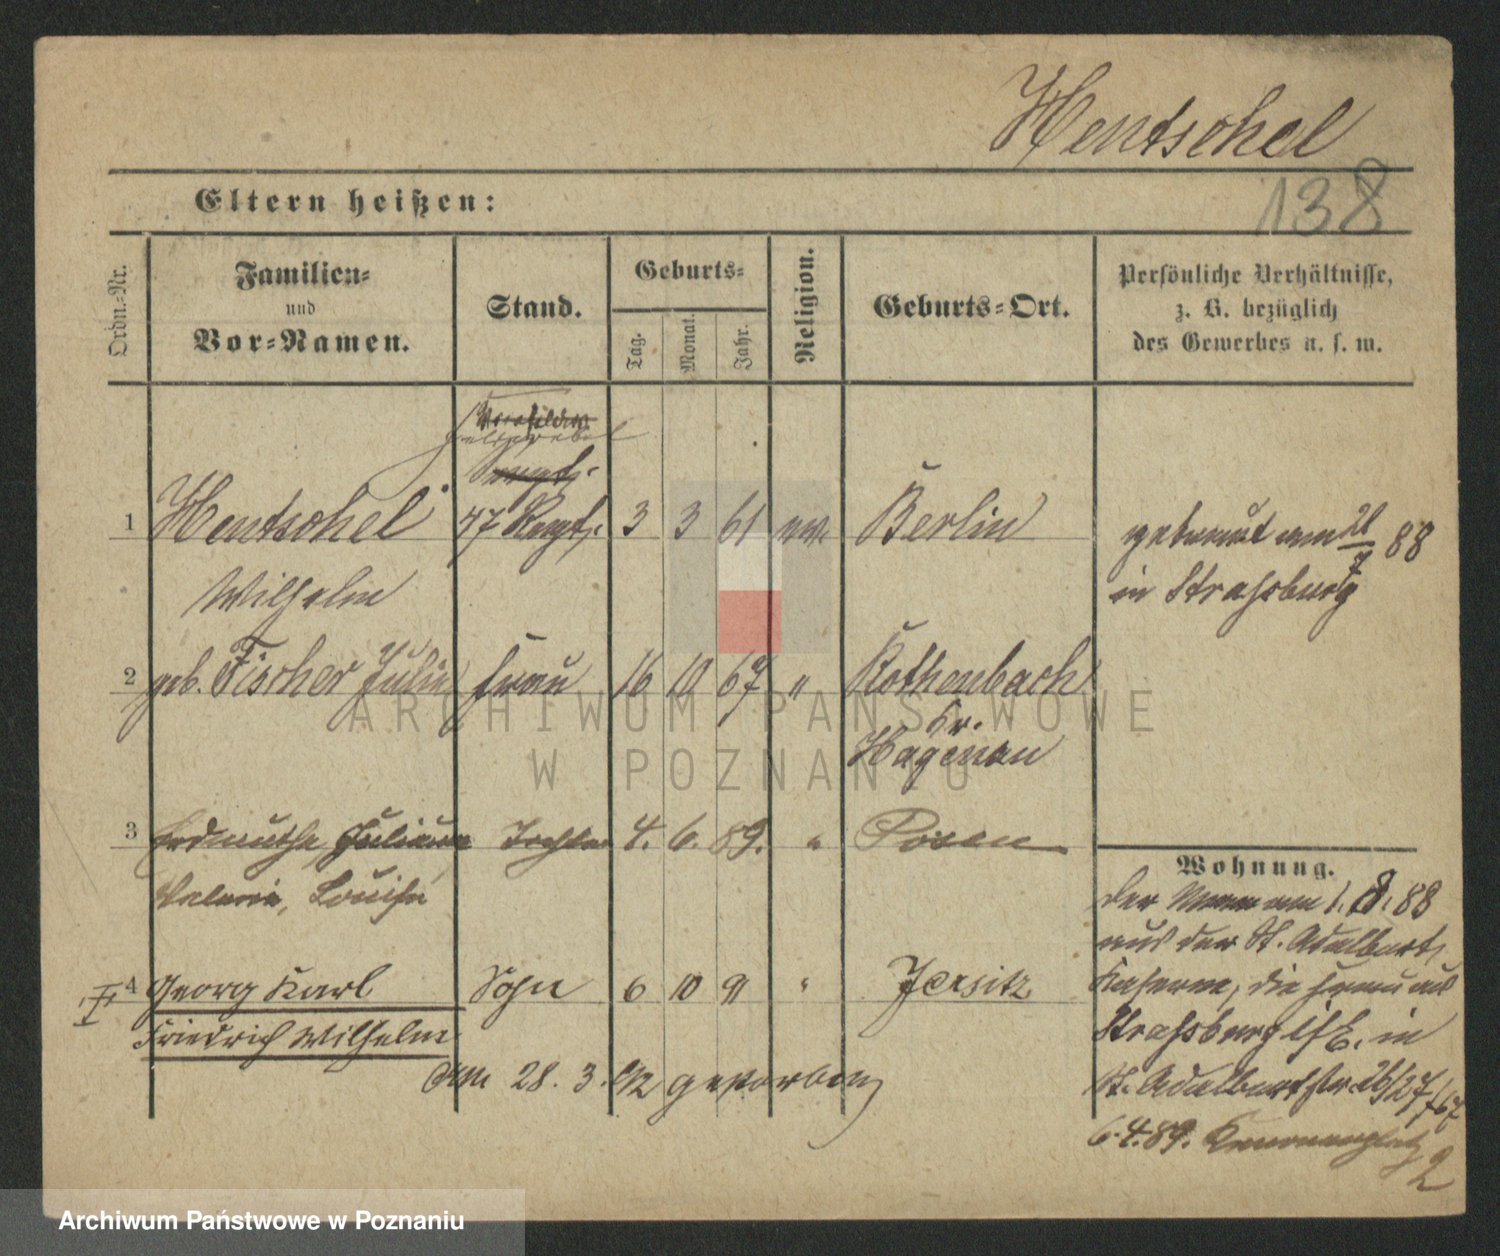 Hentschel
138
Eltern heißen:
Ordn.-Nr.
Familien-
und
Vor-Namen.
Stand.
Geburts-
Tag.
Monat.
Jahr.
Religion.
Geburts-Ort.
Persönliche Verhältnisse,
z. B. bezüglich
des Gewerbes u. s. w.
Feldwebel
1 Hentschel 3 3 61 ev. Berlin
Wilhelm
getraut am 21/7 88
in Strassburg
2 geb. Fischer Julie Frau 16 10 67 " Rothenbach
Kr.
Hagenau
3 Erdmuthe Tochter 4. 6. 89. " Posen
Valerie, Louise
Wohnung.
Der Mann am 1. 8. 88
aus der St. Adalbert
Kaserne, die Frau aus
Strassburg i/E. in
St. Adalbertstr. 26/27
6.4.89. Kanonenplatz
2
4 Georg Karl Sohn 6 10 91 " Jersitz
Friedrich Wilhelm
Am 28. 3. 92 gestorben
ARCHIWUM PAŃSTWOWE
W POZNANIU
Archiwum Państwowe w Poznaniu